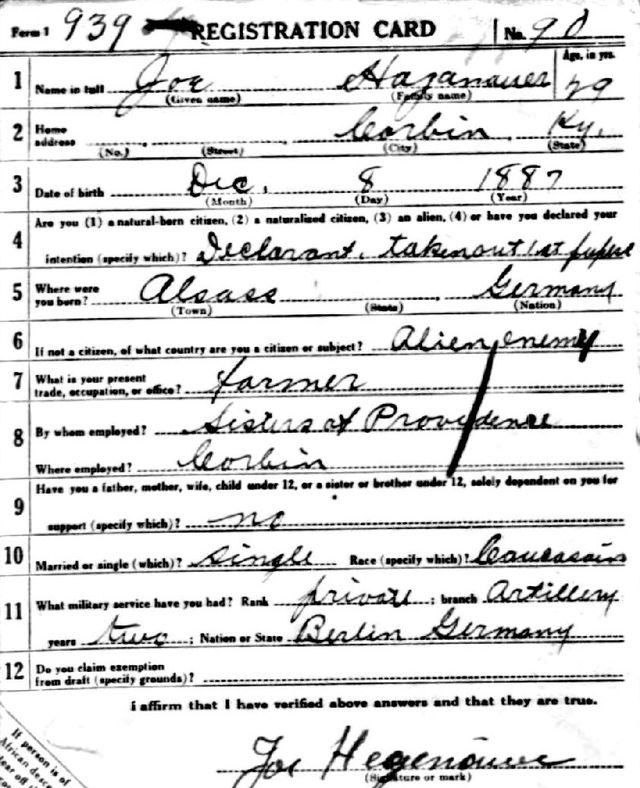 Form 1 939 REGISTRATION CARD No. 90
1 Name in full Joe Hazanauer Age, in yrs. 29
(Given name) (Family name)
2 Home address Corbin, Ky.
(No.) (Street) (City) (State)
3 Date of birth Dec. 8 1887
(Month) (Day) (Year)
4 Are you (1) a natural-born citizen, (2) a naturalized citizen, (3) an alien, (4) or have you declared your
intention (specify which)? Declarant, taken out 1st
5 Where were you born? Alsass Germany
(Town) (State) (Nation)
6 If not a citizen, of what country are you a citizen or subject? Alien enemy
7 What is your present trade, occupation, or office? farmer
8 By whom employed? Sisters of Providence
Where employed? Corbin
9 Have you a father, mother, wife, child under 12, or a sister or brother under 12, solely dependent on you for
support (specify which)? no
10 Married or single (which)? single Race (specify which)? Caucasain
11 What military service have you had? Rank private ; branch Artillery
years two ; Nation or State Berlin Germany
12 Do you claim exemption from draft (specify grounds)?
I affirm that I have verified above answers and that they are true.
Joe Hegenouwe
(Signature or mark)
If person is of
African desce
ear off